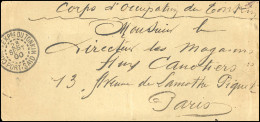 Corps d'occupation du Tonkin
Monsieur le
Directeur des Magasins
Aux Canotiers
13, Avenue de Lamothe Piquet
Paris